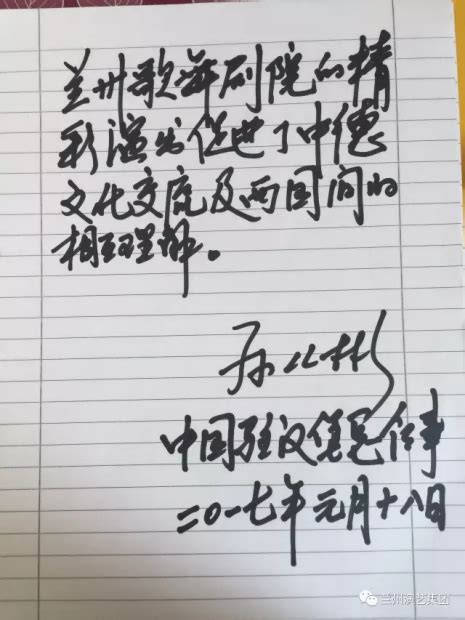 兰州歌舞剧院的精
彩演出促进了中德
文化交流及两国间的
相互理解。
孙从彬
中国驻汉堡总领事
二〇一七年元月十八日
兰州演艺集团